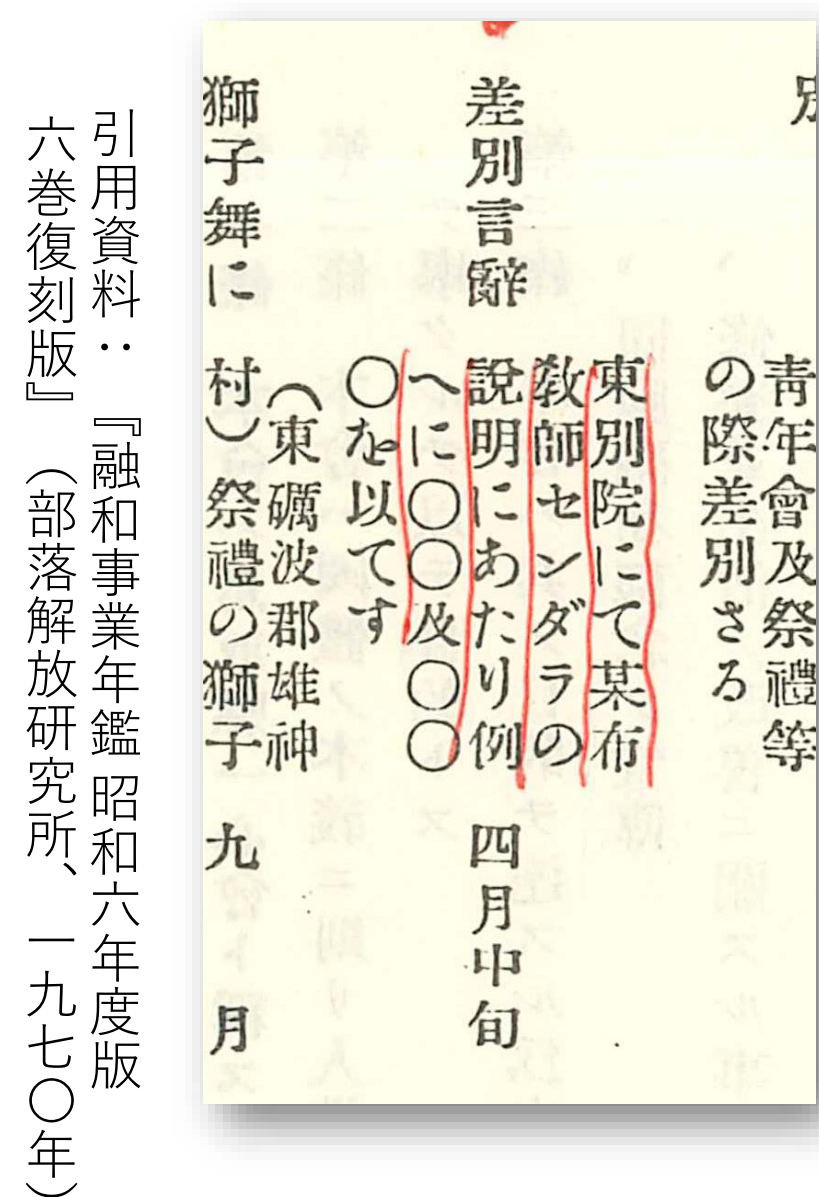 青年會及祭禮等
の際差別さる
差別言辭
東別院にて某布
敎師センダラの
説明にあたり例
へに〇〇及〇〇
〇を以てす
四月中旬
獅子舞に
（東礪波郡雄神
村）祭禮の獅子
九月
引用資料：『融和事業年鑑 昭和六年度版
六巻復刻版』（部落解放研究所、一九七〇年）